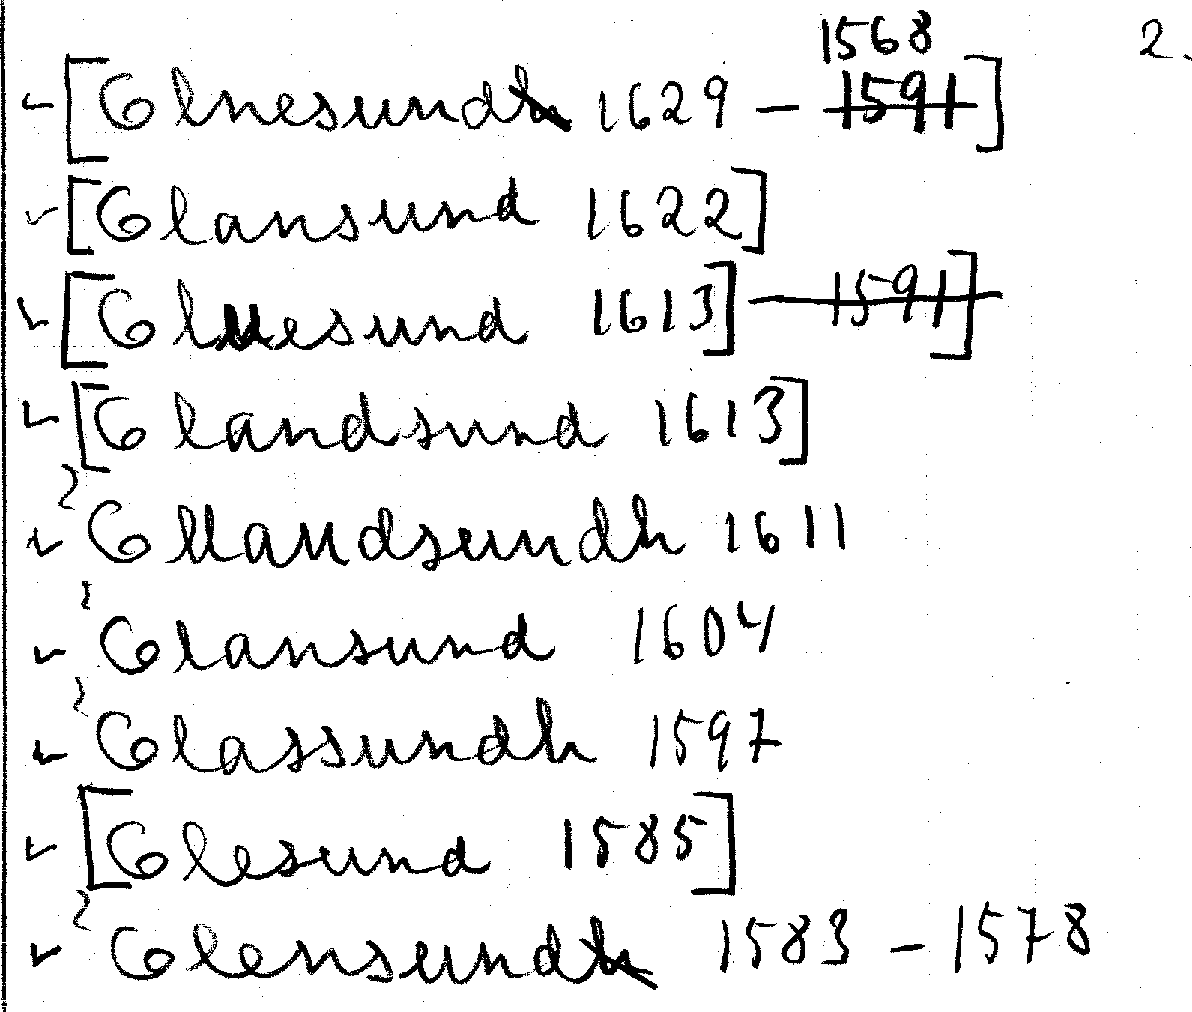 1568 2.
[Olnesundh 1629 – 1591]
[Olansund 1622]
[Olnesund 1613] – 1591]
[Olandsund 1613]
Ollandsundh 1611
Olansund 1604
Olassundh 1597
[Olesund 1585]
Olensundh 1583 – 1578